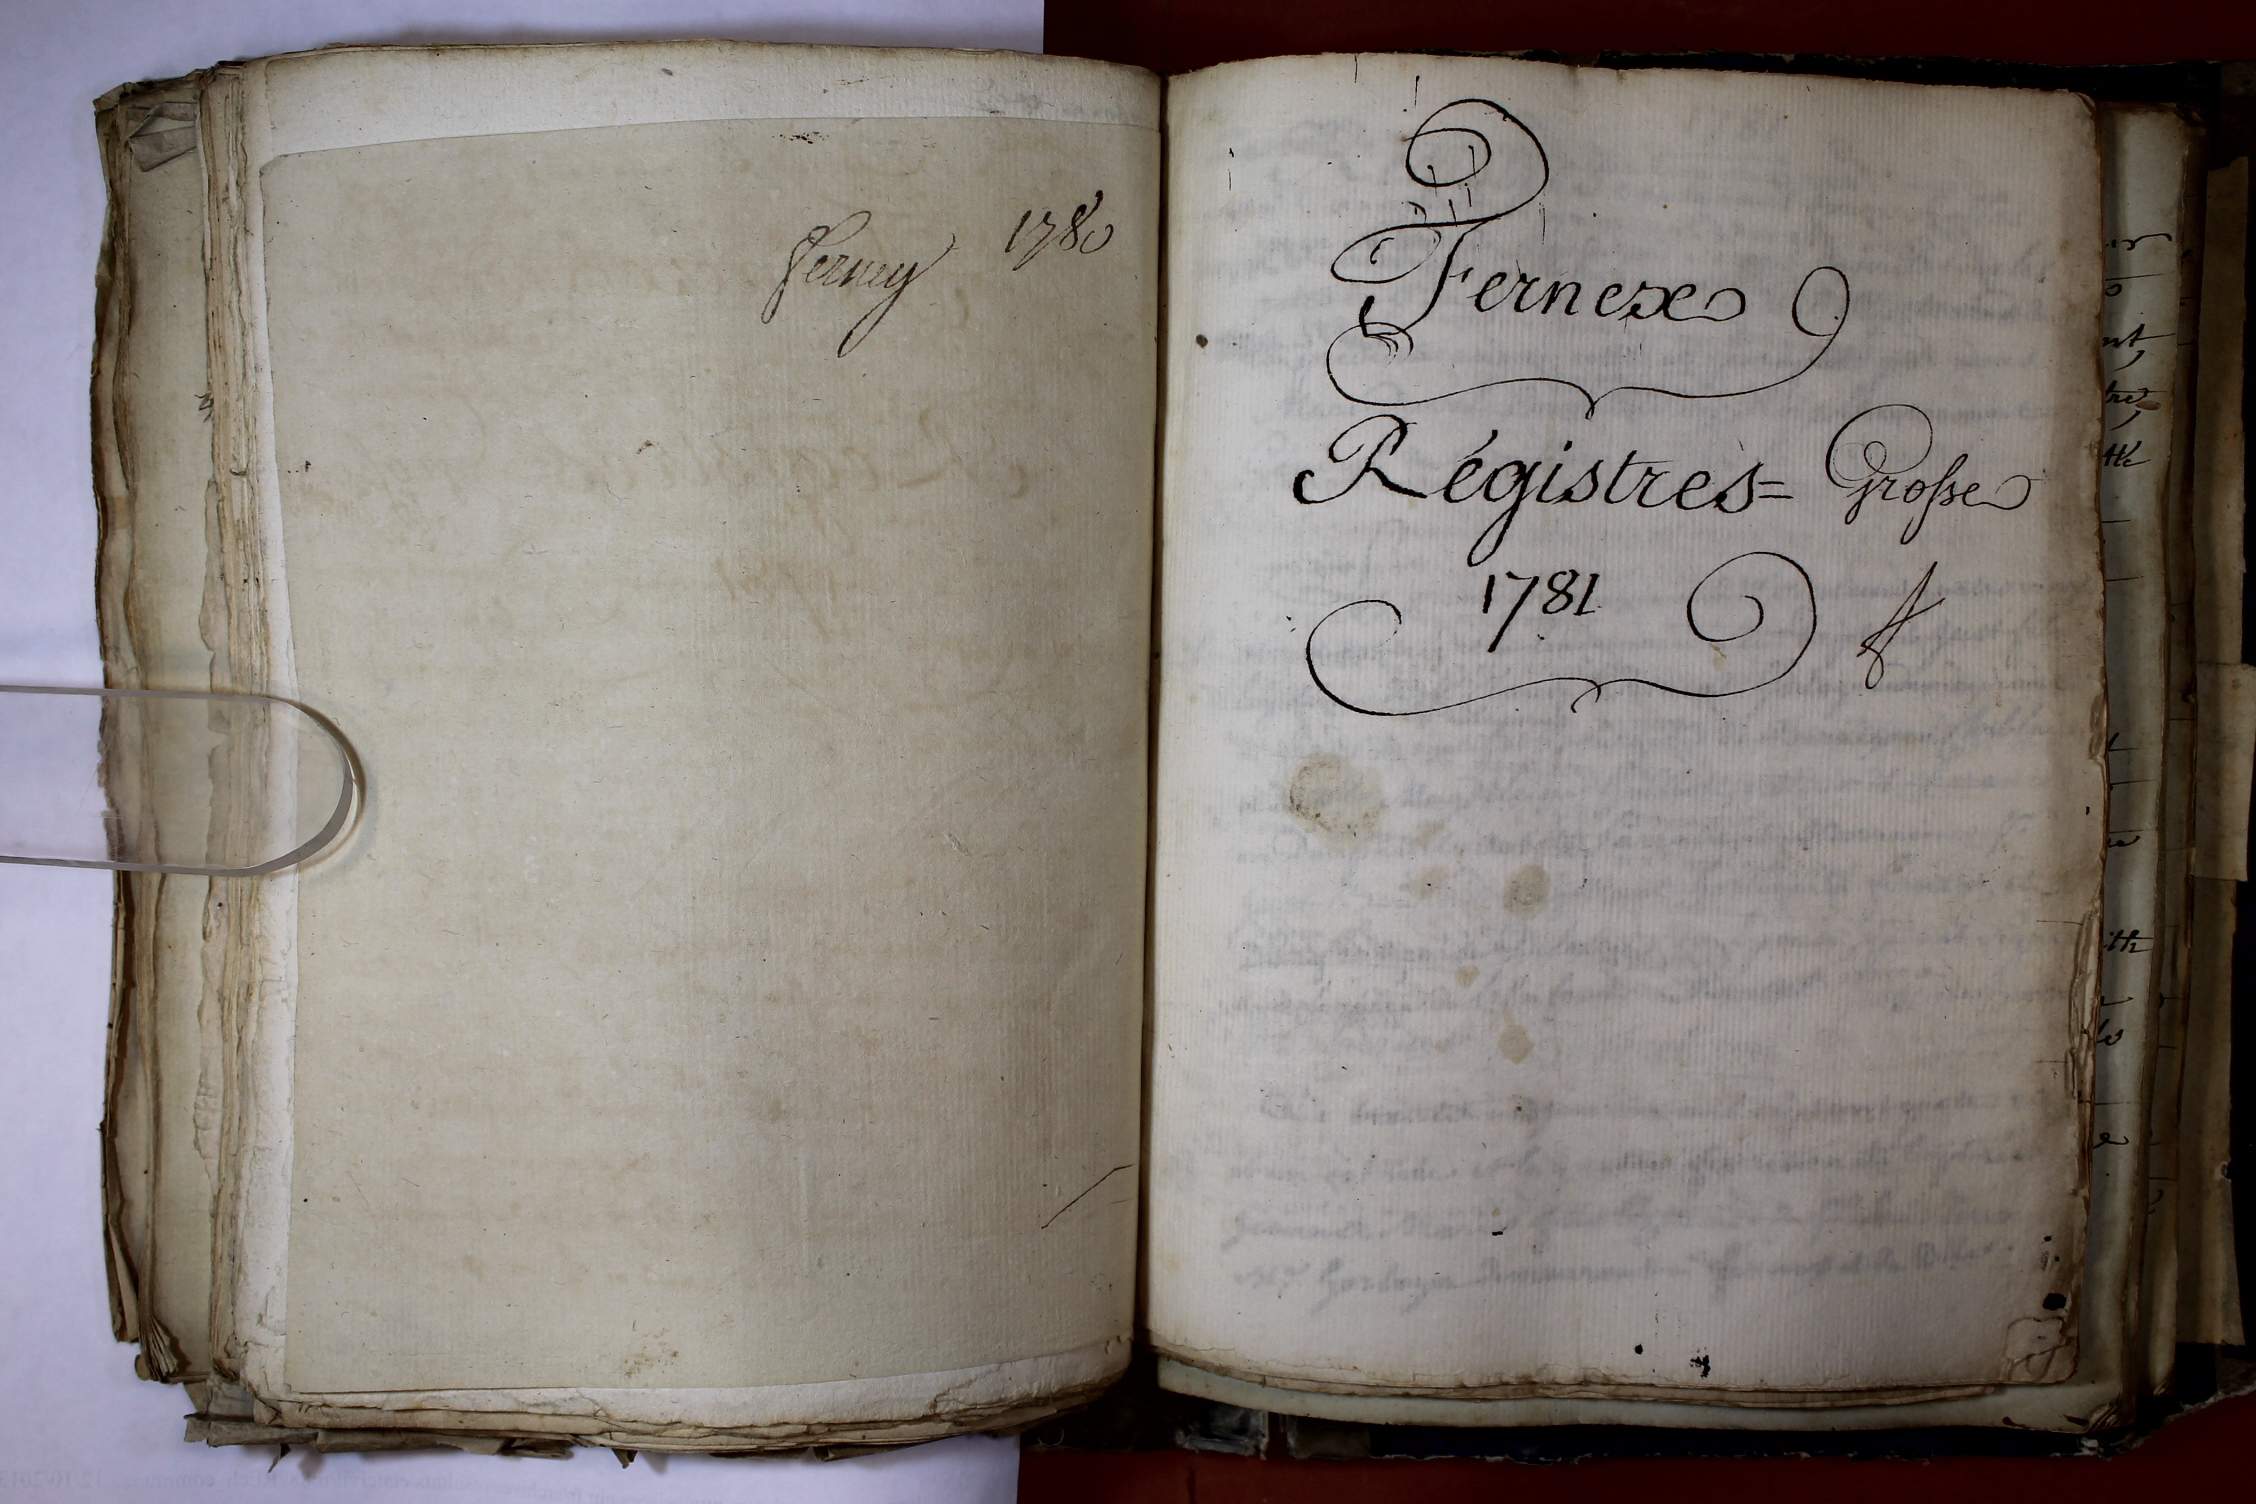 Ferney 1780
Fernex
Régistres= Grosse
1781